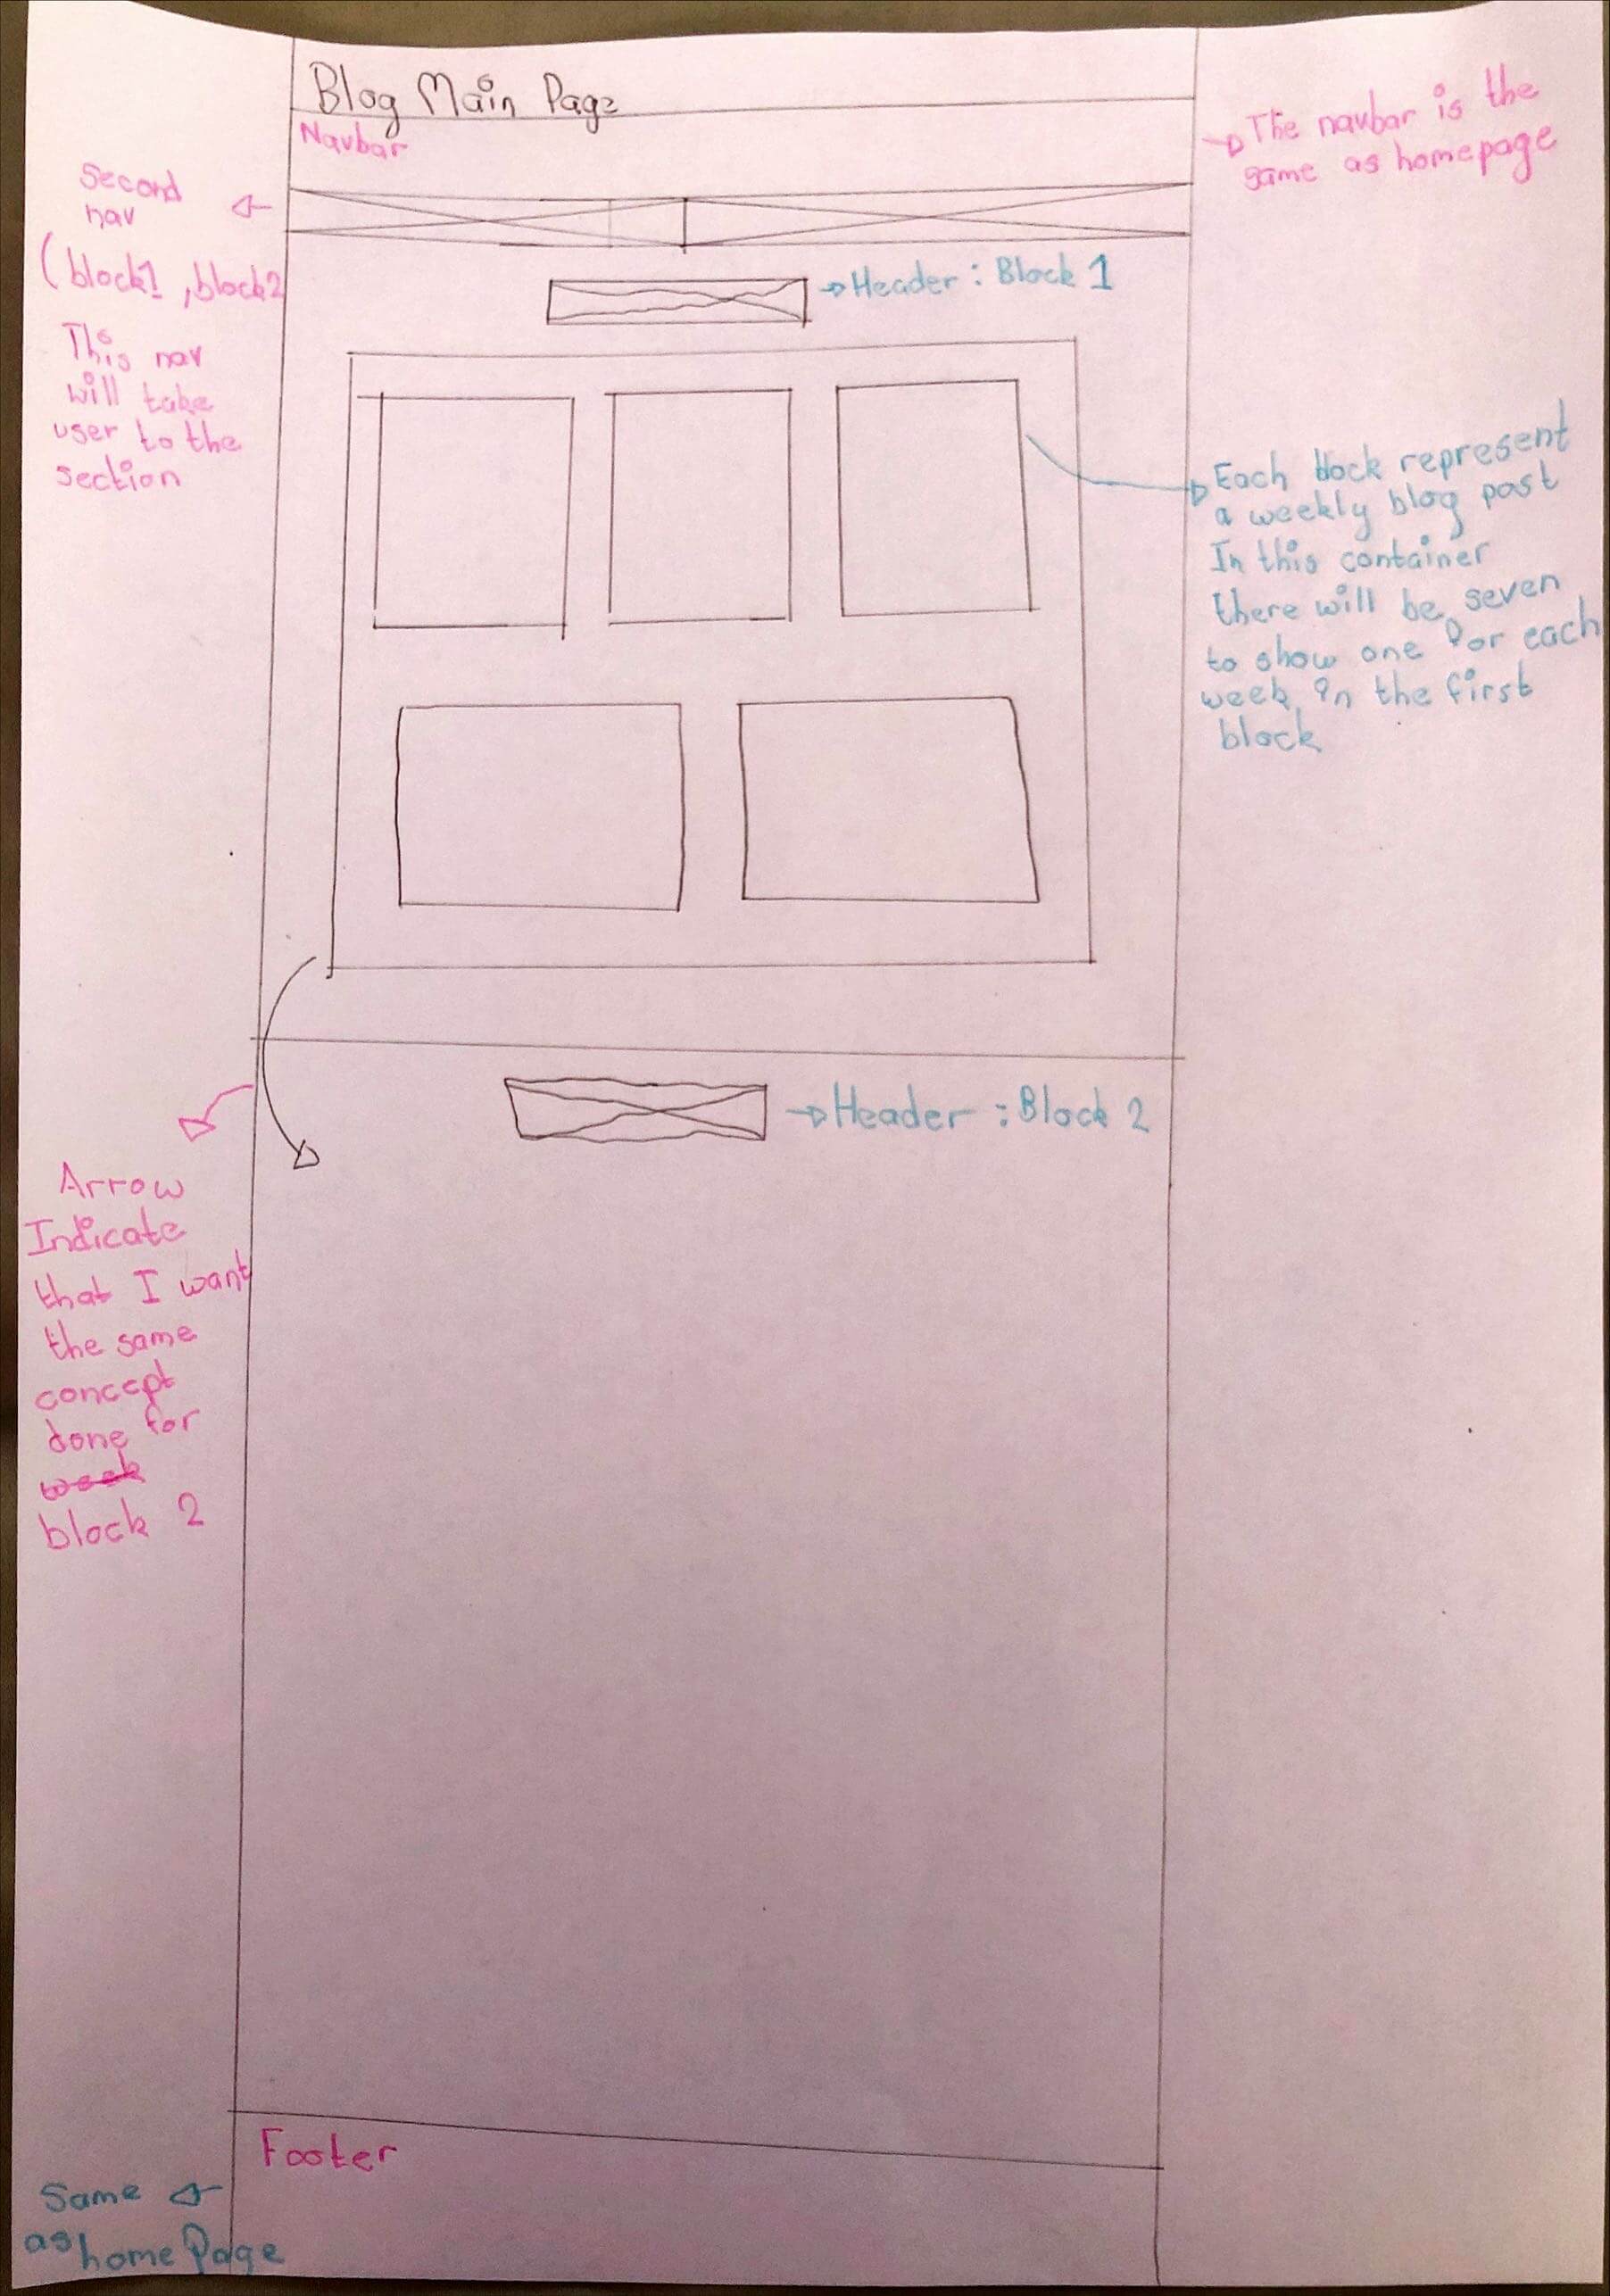 Blog Main Page
Navbar
→ The navbar is the
same as homepage
Second
nav
(block1, block2
This nav
will take
user to the
section
→ Header : Block 1
Each block represent
a weekly blog post
In this container
there will be seven
to show one for each
week in the first
block
→ Header : Block 2
Arrow
Indicate
that I want
the same
concept
done for
week
block 2
Footer
Same
as homePage